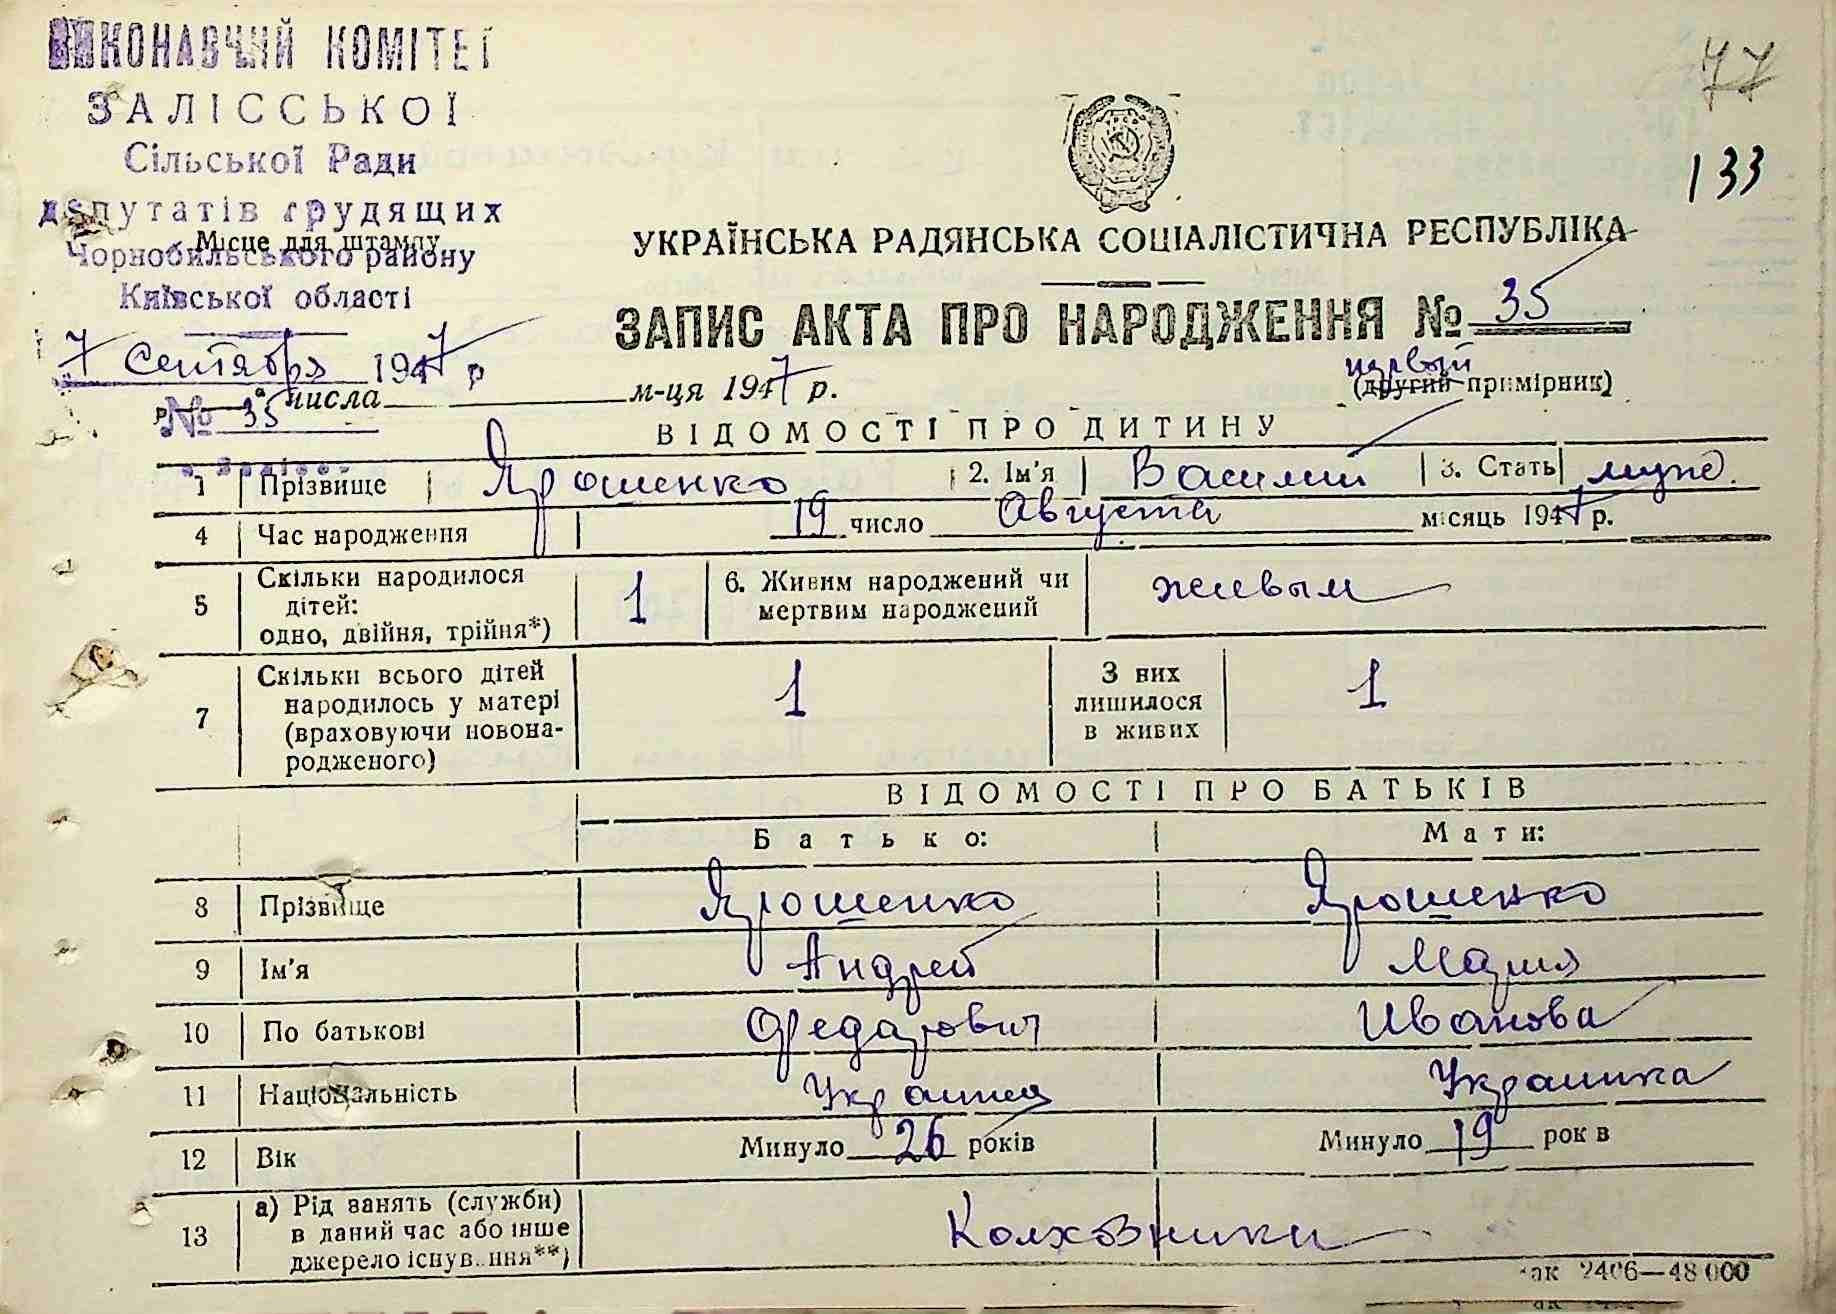 ВИКОНАВЧИЙ КОМІТЕТ
77
ЗАЛІССЬКОЇ
Сільської Ради
133
депутатів трудящих
Місце для штампу
Чорнобильського району
УКРАЇНСЬКА РАДЯНСЬКА СОЦІАЛІСТИЧНА РЕСПУБЛІКА
Київської області
ЗАПИС АКТА ПРО НАРОДЖЕННЯ № 35
7 Сентября 1947 р
первый
числа м-ця 1947 р. (другий примірник)
№ 35
ВІДОМОСТІ ПРО ДИТИНУ
1 Прізвище Ярошенко 2. Ім'я Василий 3. Стать муж.
4 Час народження 19 число Августа місяць 1947 р.
5 Скільки народилося дітей: одно, двійня, трійня*) 1 6. Живим народжений чи мертвим народжений живым
7 Скільки всього дітей народилось у матері (враховуючи новонародженого) 1 З них лишилося в живих 1
ВІДОМОСТІ ПРО БАТЬКІВ
Батько: Мати:
8 Прізвище Ярошенко Ярошенко
9 Ім'я Андрей Мария
10 По батькові Федарович Иванова
11 Національність Украинец Украинка
12 Вік Минуло 26 років Минуло 19 рок в
13 а) Рід занять (служби) в даний час або інше джерело існув..ння**) Колховники
ак 2406—48 000